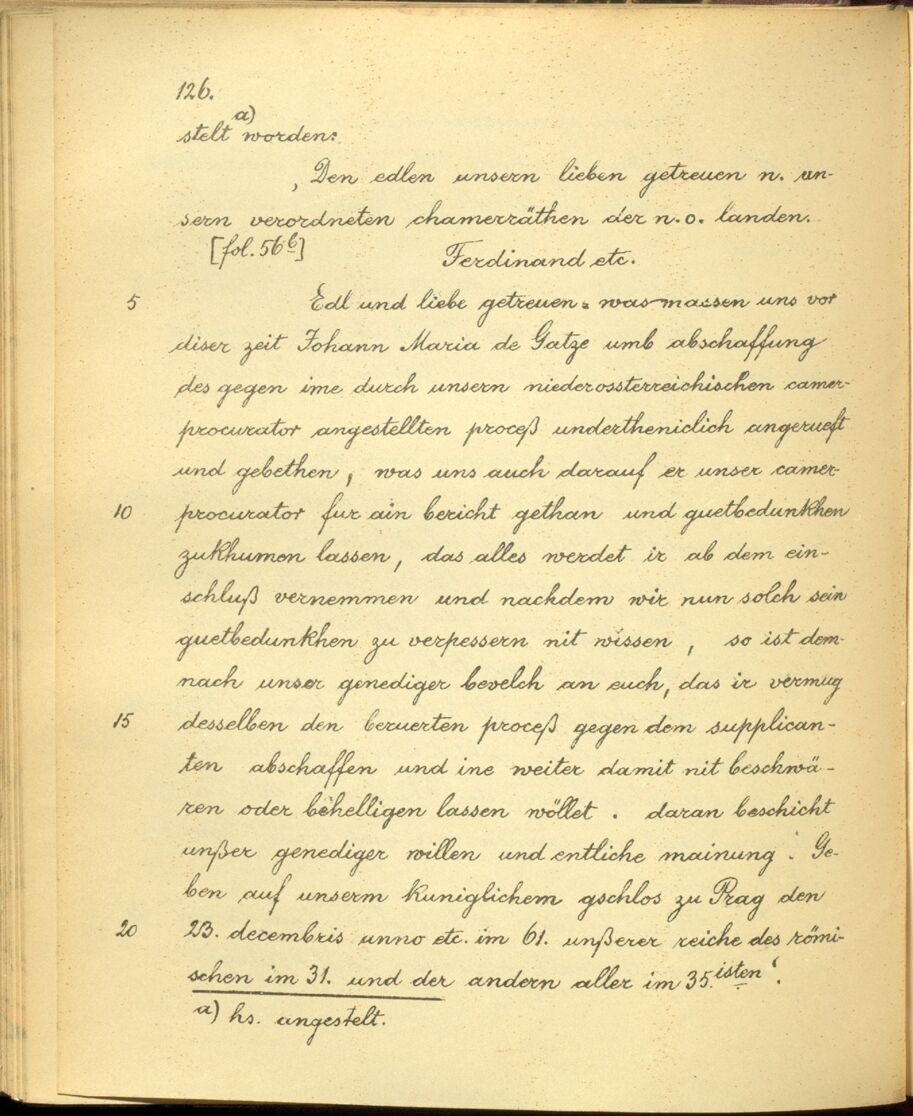 126.
stelt a) worden:
‚Den edlen unsern lieben getreuen n. un-
sern verordneten chamerräthen der n. o. landen.
[fol. 56b] Ferdinand etc.
5 Edl und liebe getreuen. was massen uns vor
diser zeit Johann Maria de Gatze umb abschaffung
des gegen ime durch unsern niederossterreichischen camer-
procurator angestellten proceß undertheniclich angerueft
und gebethen, was uns auch darauf er unser camer-
10 procurator fur ain bericht gethan und guetbedunkhen
zukhumen lassen, das alles werdet ir ab dem ein-
schluß vernemmen und nachdem wir nun solch sein
guetbedunkhen zu verpessern nit wissen, so ist dem-
nach unser genediger bevelch an euch, das ir vermug
15 desselben den beruerten proceß gegen dem supplican-
ten abschaffen und ine weiter damit nit beschwä-
ren oder behelligen lassen wöllet. daran beschicht
unßer genediger willen und entliche mainung. Ge-
ben auf unserm kuniglichem gschlos zu Prag den
20 23. decembris unno etc. im 61. unßerer reiche des römi-
schen im 31. und der andern aller im 35.isten‘.
a) hs. angestelt.